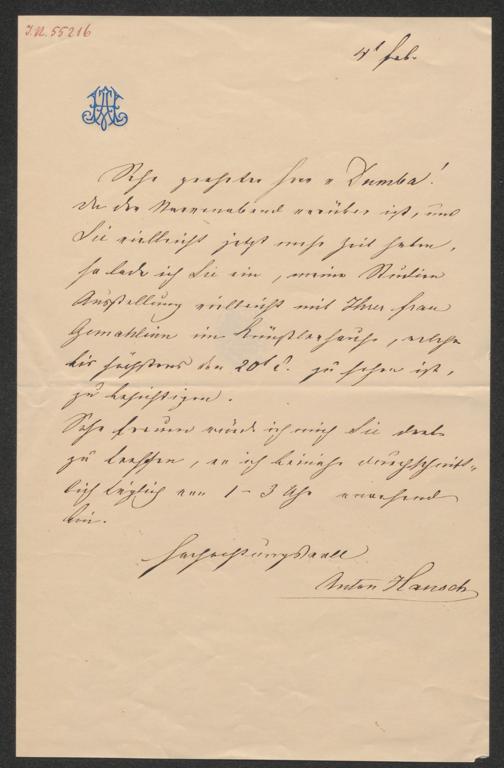 J.N. 55216
4t Feb.
AH
Sehr geehrter Herr v Dumba!
Da der Narrenabend vorüber ist, und
Sie vielleicht jetzt mehr Zeit haben,
so lade ich Sie ein, meine Studien
Ausstellung vielleicht mit Ihrer Frau
Gemahlinn im Künstlerhause, welche
bis höchstens den 20t d. zu sehen ist,
zu besichtigen.
Sehr freuen würde ich mich Sie dort
zu treffen, wo ich beinahe durchschnitt-
lich täglich von 1 - 3 Uhr anwesend
bin.
Hochachtungsvoll
Anton Hansch